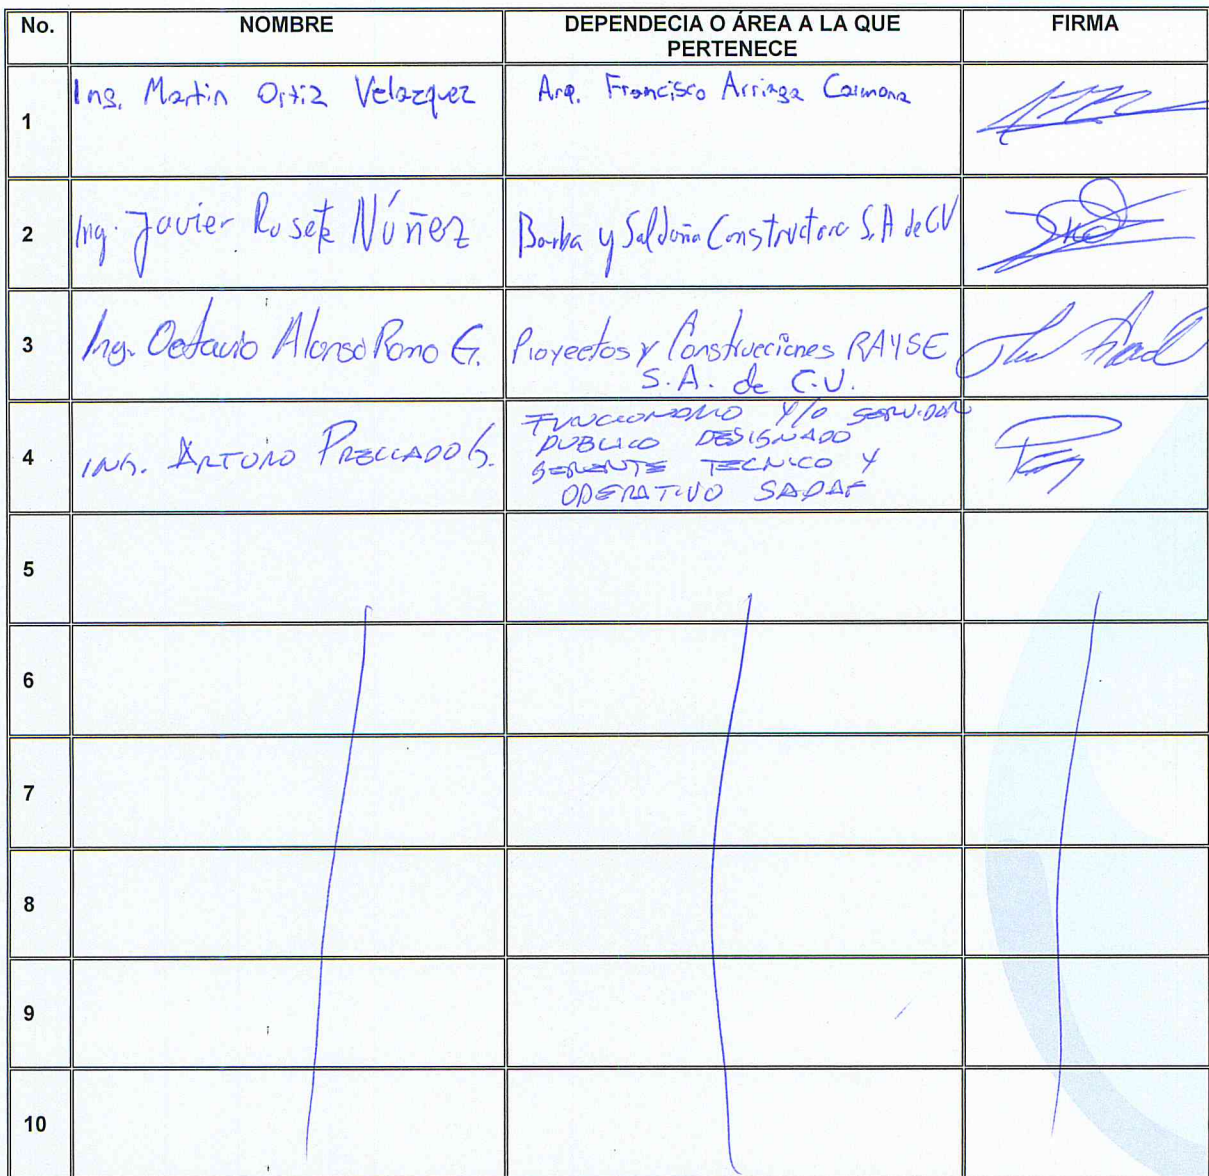 No. NOMBRE DEPENDECIA O ÁREA A LA QUE PERTENECE FIRMA
1 Ing. Martin Ortiz Velazquez Arq. Francisco Arriaga Carmona
2 Ing. Javier Rosete Núñez Barba y Saldaña Constructora S.A de CV
3 Ing. Octavio Alonso Romo G. Proyectos y Construcciones RAYSE
S.A. de C.V.
4 ING. ARTURO PRECIADO G. FUNCIONARIO Y/O SERVIDOR
PUBLICO DESIGNADO
GERENTE TECNICO Y
OPERATIVO SAPAF
5
6
7
8
9
10